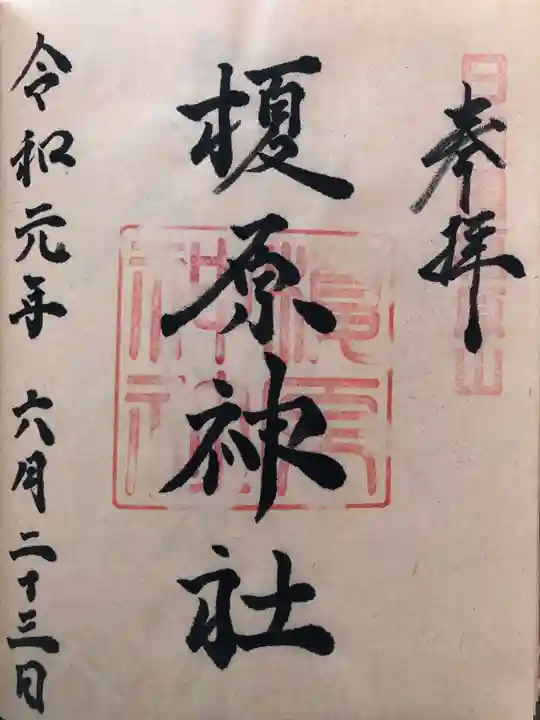 奉拝
榎原神社
令和元年 六月二十三日
榎原神社